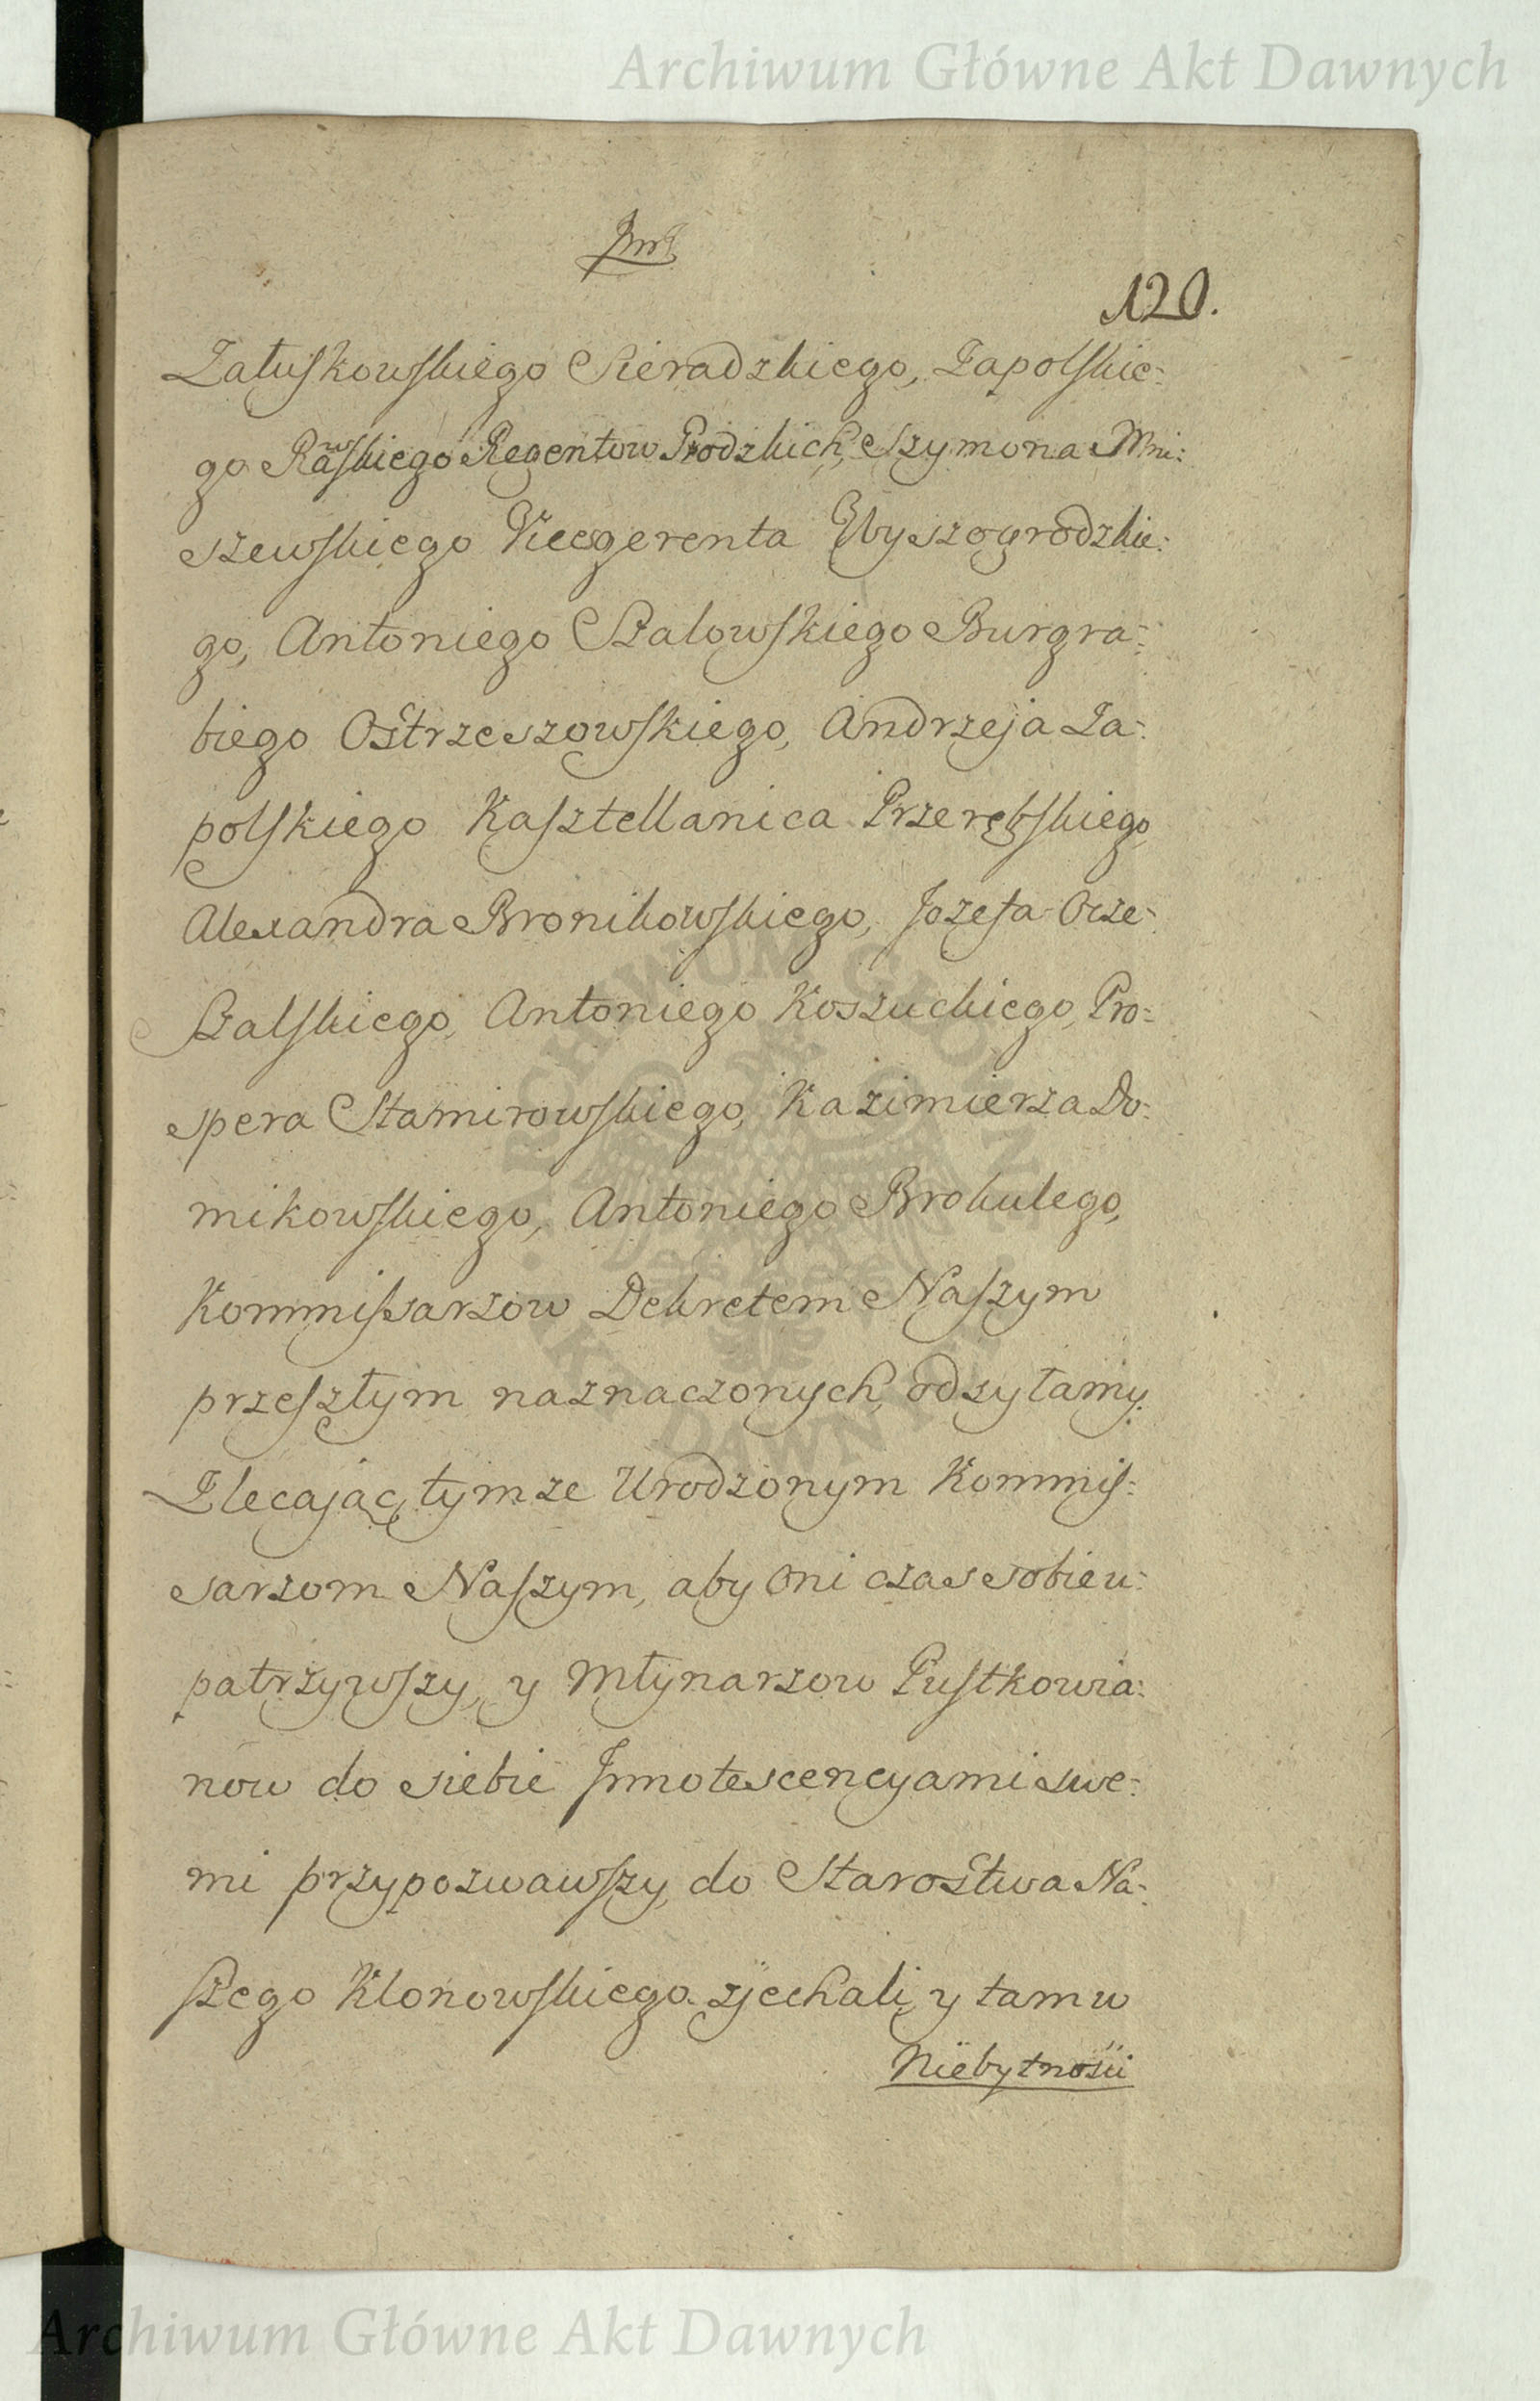 Archiwum Główne Akt Dawnych
120.
Załuskowskiego Sieradzkiego, Zapolskie:
go Rawskiego Regentow Grodzkich, Szymona Mni:
szewskiego Vicesgerenta Wyszogrodzkie:
go, Antoniego Szalowskiego Burgra:
biego Ostrzeszowskiego, Andrzeja Za:
polskiego Kasztellanica Przerębskiego
Alexandra Bronikowskiego, Jozefa Orze:
Szalskiego, Antoniego Koszuckiego, Pro:
spera Stamirowskiego, Kazimierza Do:
mikowskiego, Antoniego Brokulego,
Kommissarzow Dekretem Naszym
przeszłym naznaczonych, odsyłamy.
Zlecaiąc tymze Urodzonym Kommis:
sarzom Naszym, aby oni czas sobie u:
patrzywszy, y Młynarzow Pustkowia:
now do siebie Innotescencyami swe:
mi przypozwawszy, do Starostwa Na:
szego Klonowskiego zjechali, y tam w
Niebytnosci
ARCHIWUM GŁÓWNE AKT DAWNYCH
Archiwum Główne Akt Dawnych